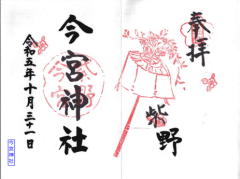 奉拝
紫野
今宮神社
令和五年十月三十一日
今宮神社